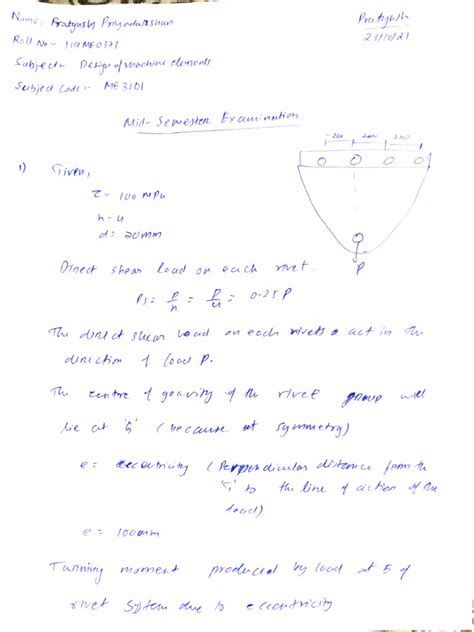 Name:- Pratyush Priyadarshan
Pratyush
23/10/21
Roll No- 119ME0371
Subject- Design of machine elements
Subject Code:- ME3101
Mid-Semester Examination
200 200
1) Given,
τ = 100 MPa
n = 4
d = 20mm
P
Direct shear load on each rivet.
Ps = P/n = P/4 = 0.25 P
The direct shear load on each rivets act in the
direction of load P.
The centre of gravity of the rivet group will
lie at 'G' (because of symmetry)
e = eccentricity (Perpendicular distance from the
'G' to the line of action of the
load)
e = 100mm
Turning moment produced by load at 5 of
rivet system due to eccentricity